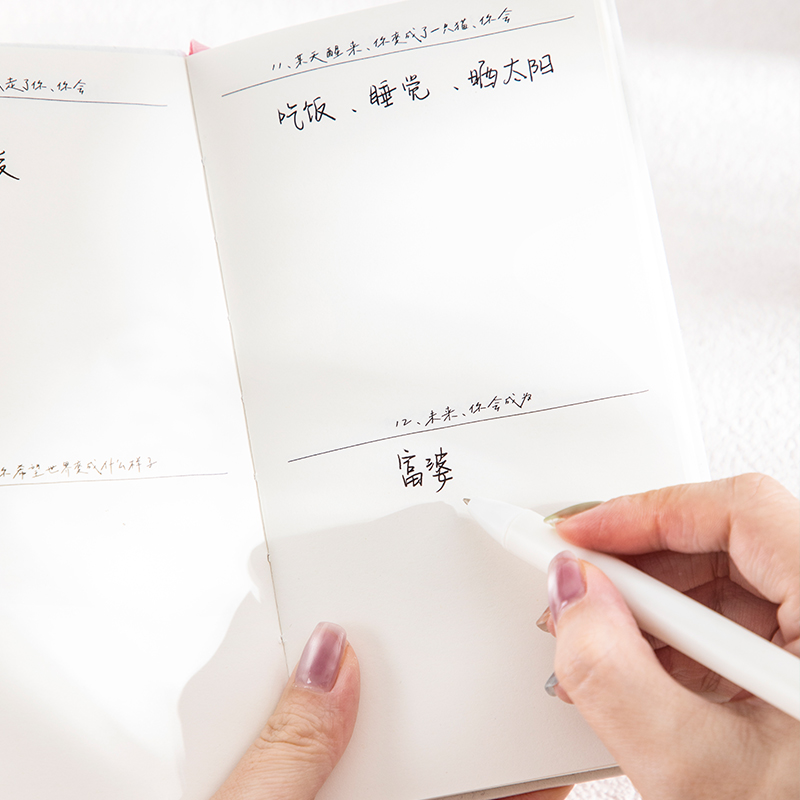 走了你、你会
你希望世界变成什么样子
11、某天醒来、你变成了一只猫、你会
吃饭、睡觉、晒太阳
12、未来、你会成为
富婆